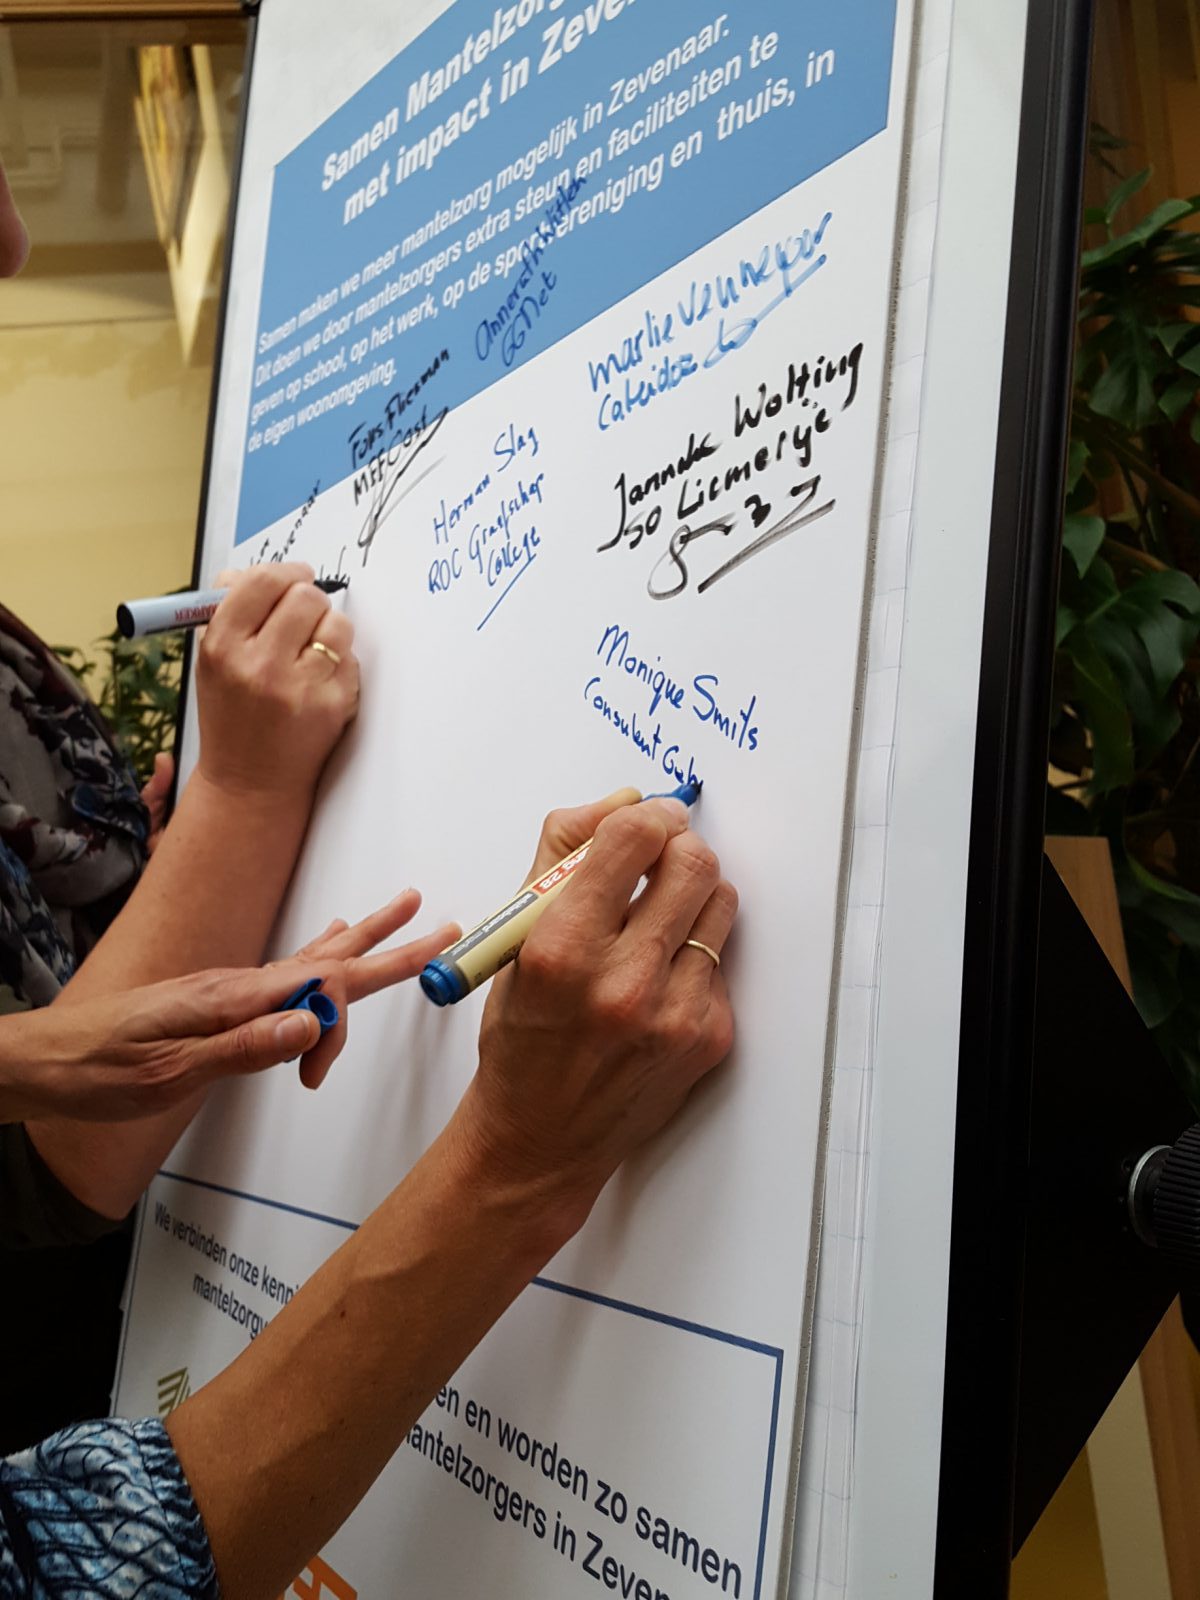 Samen Mantelzorg
met impact in Zeven
Samen maken we meer mantelzorg mogelijk in Zevenaar.
Dit doen we door mantelzorgers extra steun en faciliteiten te
geven op school, op het werk, op de sportvereniging en thuis, in
de eigen woonomgeving.
GGNet
Marlie Vennegoor
Caleidoz
Fons Flierman
MEE Oost
Herman Slag
ROC Graafschap
College
Janneke Wolting
SO Liemerije
Monique Smits
Consulent
We verbinden onze kenni
mantelzorgv
en en worden zo samen
mantelzorgers in Zeven